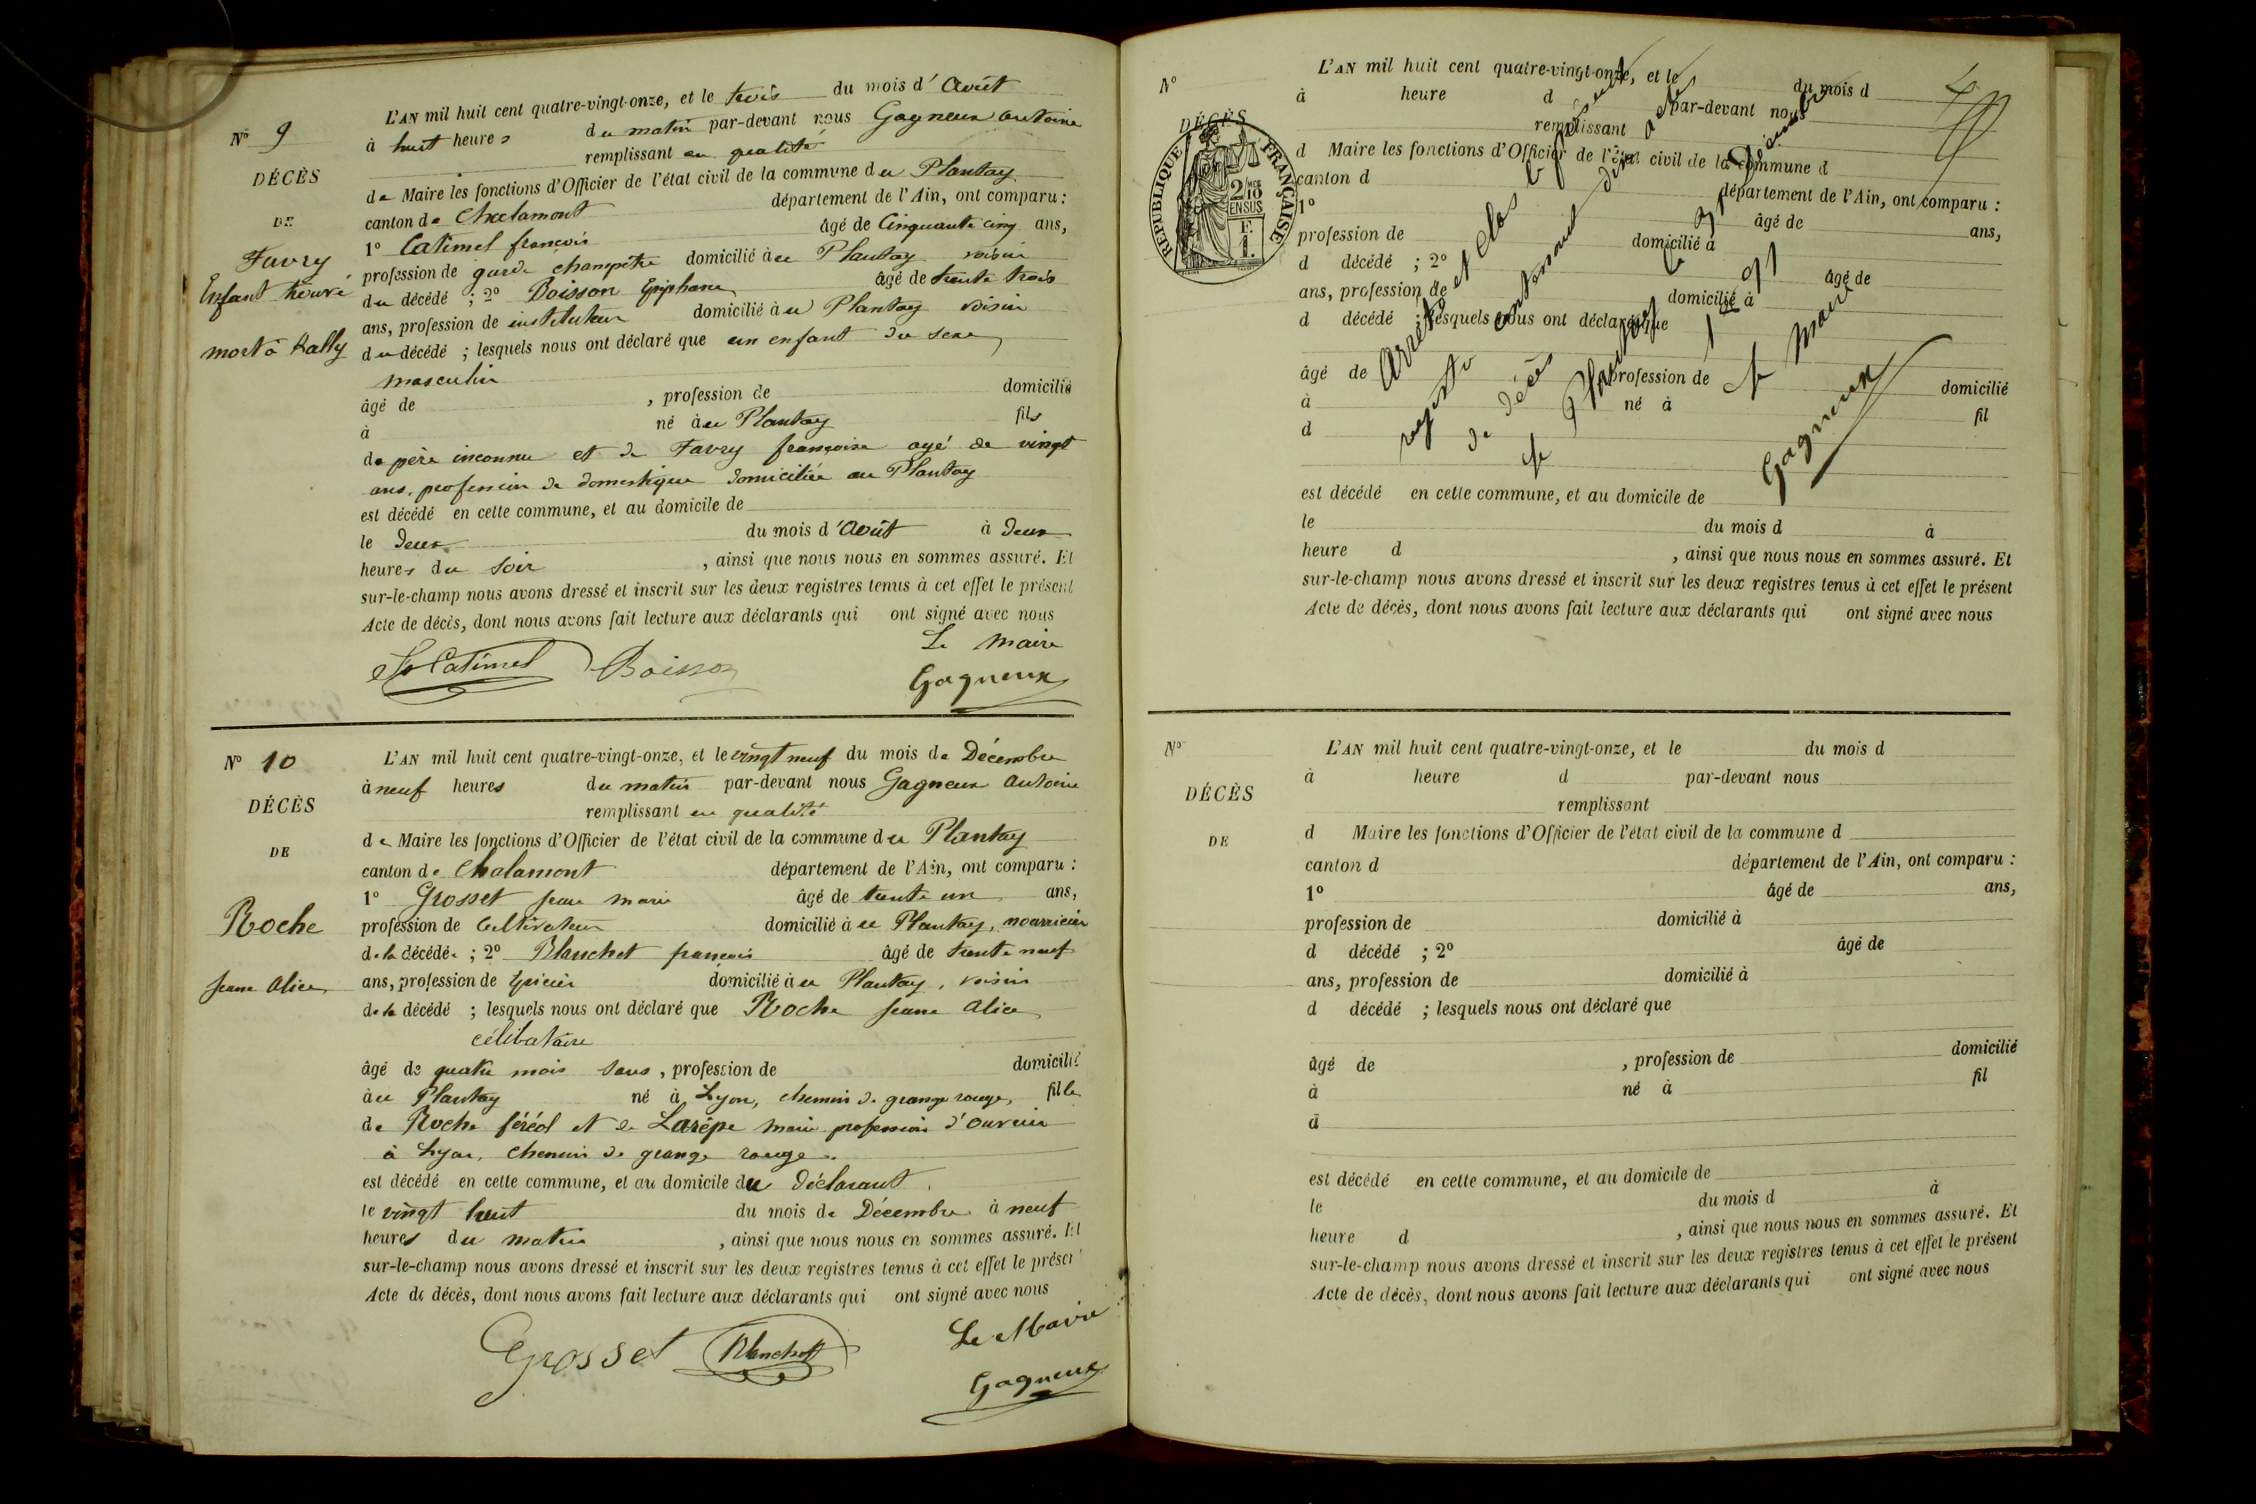 L'AN mil huit cent quatre-vingt-onze, et le trois du mois d'Août
N° 9
à huit heures du matin par-devant nous Gagneux antoine
remplissant en qualité
DÉCÈS
de Maire les fonctions d'Officier de l'état civil de la commune du Plantay
canton de Chalamont département de l'Ain, ont comparu :
DE
1° Catimel françois âgé de Cinquante cinq ans,
Favry
profession de garde champêtre domicilié à au Plantay voisin
Enfant
du décédé ; 2° Boisson Epiphane âgé de trente trois
ans, profession de instituteur domicilié à au Plantay voisin
mort à
du décédé ; lesquels nous ont déclaré que un enfant du sexe
masculin
âgé de , profession de domicilié
à né à au Plantay fils
de père inconnu et de Favry françoise agé de vingt
ans, profession de domestique domiciliée au Plantay
est décédé en cette commune, et au domicile de
le deux du mois d'Août à deux
heures du soir , ainsi que nous nous en sommes assuré. Et
sur-le-champ nous avons dressé et inscrit sur les deux registres tenus à cet effet le présent
Acte de décès, dont nous avons fait lecture aux déclarants qui ont signé avec nous
Le Maire
Catimel Boisson Gagneux
N° 10
L'AN mil huit cent quatre-vingt-onze, et le vingt neuf du mois de Décembre
à neuf heures du matin par-devant nous Gagneux antoine
DÉCÈS
remplissant en qualité
de Maire les fonctions d'Officier de l'état civil de la commune du Plantay
DE
canton de Chalamont département de l'Ain, ont comparu :
1° Grosset jean marie âgé de trente un ans,
Roche
profession de Cultivateur domicilié à au Plantay, nourricier
de la décédée ; 2° Blanchet françois âgé de trente neuf
Jeane Alice
ans, profession de Epicier domicilié à au Plantay, voisin
de la décédé ; lesquels nous ont déclaré que Roche Jeane Alice
célibataire
âgé de quatre mois sans , profession de domicilié
à au Plantay né à Lyon, chemin de grange rouge, fille
de Roche féréol et de Larépe marie profession d'ouvrier
à Lyon, chemin de grange rouge.
est décédé en cette commune, et au domicile du déclarant.
le vingt huit du mois de Décembre à neuf
heures du matin , ainsi que nous nous en sommes assuré. Et
sur-le-champ nous avons dressé et inscrit sur les deux registres tenus à cet effet le présent
Acte de décès, dont nous avons fait lecture aux déclarants qui ont signé avec nous
Grosset Blanchet Le Maire
Gagneux
N°
L'AN mil huit cent quatre-vingt-onze, et le du mois d
à heure d par-devant nous
DÉCÈS
remplissant
RÉPUBLIQUE FRANÇAISE
2/10 EN SUS
F. 1.
d Maire les fonctions d'Officier de l'état civil de la commune d
canton d département de l'Ain, ont comparu :
1° âgé de ans,
profession de domicilié à
d décédé ; 2° âgé de
ans, profession de domicilié à
d décédé ; lesquels nous ont déclaré que
âgé de profession de domicilié
à né à fil
d
est décédé en cette commune, et au domicile de
le du mois d à
heure d , ainsi que nous nous en sommes assuré. Et
sur-le-champ nous avons dressé et inscrit sur les deux registres tenus à cet effet le présent
Acte de décès, dont nous avons fait lecture aux déclarants qui ont signé avec nous
Arrêté et clos le présent
registre contenant dix actes
de décès
Le Plantay le 31 Décembre
1891
Le Maire
Gagneux
N°
L'AN mil huit cent quatre-vingt-onze, et le du mois d
à heure d par-devant nous
DÉCÈS
remplissant
DE
d Maire les fonctions d'Officier de l'état civil de la commune d
canton d département de l'Ain, ont comparu :
1° âgé de ans,
profession de domicilié à
d décédé ; 2° âgé de
ans, profession de domicilié à
d décédé ; lesquels nous ont déclaré que
âgé de , profession de domicilié
à né à fil
d
est décédé en cette commune, et au domicile de
le du mois d à
heure d , ainsi que nous nous en sommes assuré. Et
sur-le-champ nous avons dressé et inscrit sur les deux registres tenus à cet effet le présent
Acte de décès, dont nous avons fait lecture aux déclarants qui ont signé avec nous